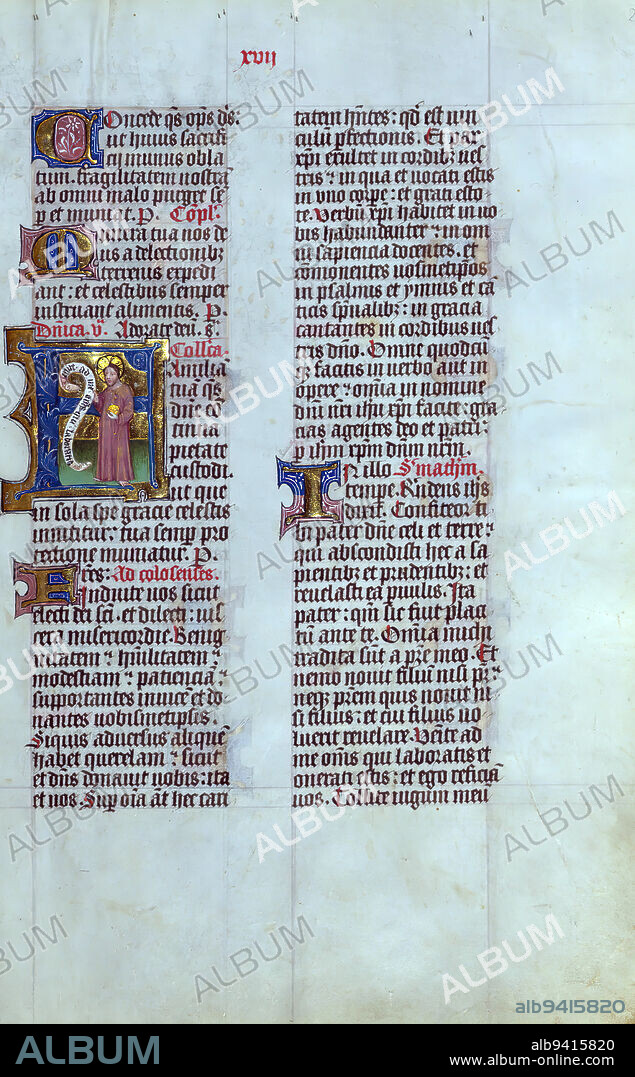 xvij
Oncede qs ops ds:
ut huius sacrifi
cij munus obla
tum. fragilitatem nostrā
ab omni malo purget sē
p et muniat. P. Cōpl.
Unera tua nos de
us a delectionibz
terrenis expedi
ant: et celestibus semper
instruant alimentis. P.
Dnica. v. Adorate deū. s.
Collcā
Amiliā
tuā qs
dne cō
tinua
pietate
custodi.
ut que
in sola spe gracie celestis
innititur: tua semper pro
tectione muniatur. P.
Fres: Ad colosenses.
Induite uos sicut
electi dei sci. et dilecti: uis
cera misericordie. Benig
nitatem: hūilitatem:
modestiam: patienciā:
supportantes inuicē et do
nantes uobismetipsis.
Siquis aduersus aliquē
habet querelam: sicut
et dns donauit uobis: ita
et uos. Sup oīa āt hec cari
tatem hntes: qd est uin
culū pfectionis. Et pax
xpi exultet in cordibz ues
tris: in qua et uocati estis
in vno corpe: et grati esto
te. Verbū xpi habitet in uo
bis habundanter: in om
ni sapiencia docentes. et
cōmonentes uosmetipsos
in psalmis et ymnis et cā
ticis spūalibz: in gracia
cantantes in cordibus ues
tris dno. Omne quodcū
qz facitis in verbo aut in
opere: omīa in nomine
dni nri ihu xpi facite: gra
cias agentes deo et patri:
p ihm xpm dnm nrm.
In illo S. mathm.
tempe. Rndens ihs
dixit. Confiteor ti
bi pater dne celi et terre:
qui abscondisti hec a sa
pientibz et prudentibz: et
reuelasti ea puulis. Ita
pater: qm sic fuit placi
tū ante te. Omīa michi
tradita sūt a pre meo. Et
nemo nouit filium nisi pr:
neqz prem quis nouit ni
si filius: et cui filius uo
luerit reuelare. Venite ad
me omīs qui laboratis et
onerati estis: et ego reficiā
uos. Tollite iugum meū
ALBUM
alb9415820
alb9415820
www.album-online.com